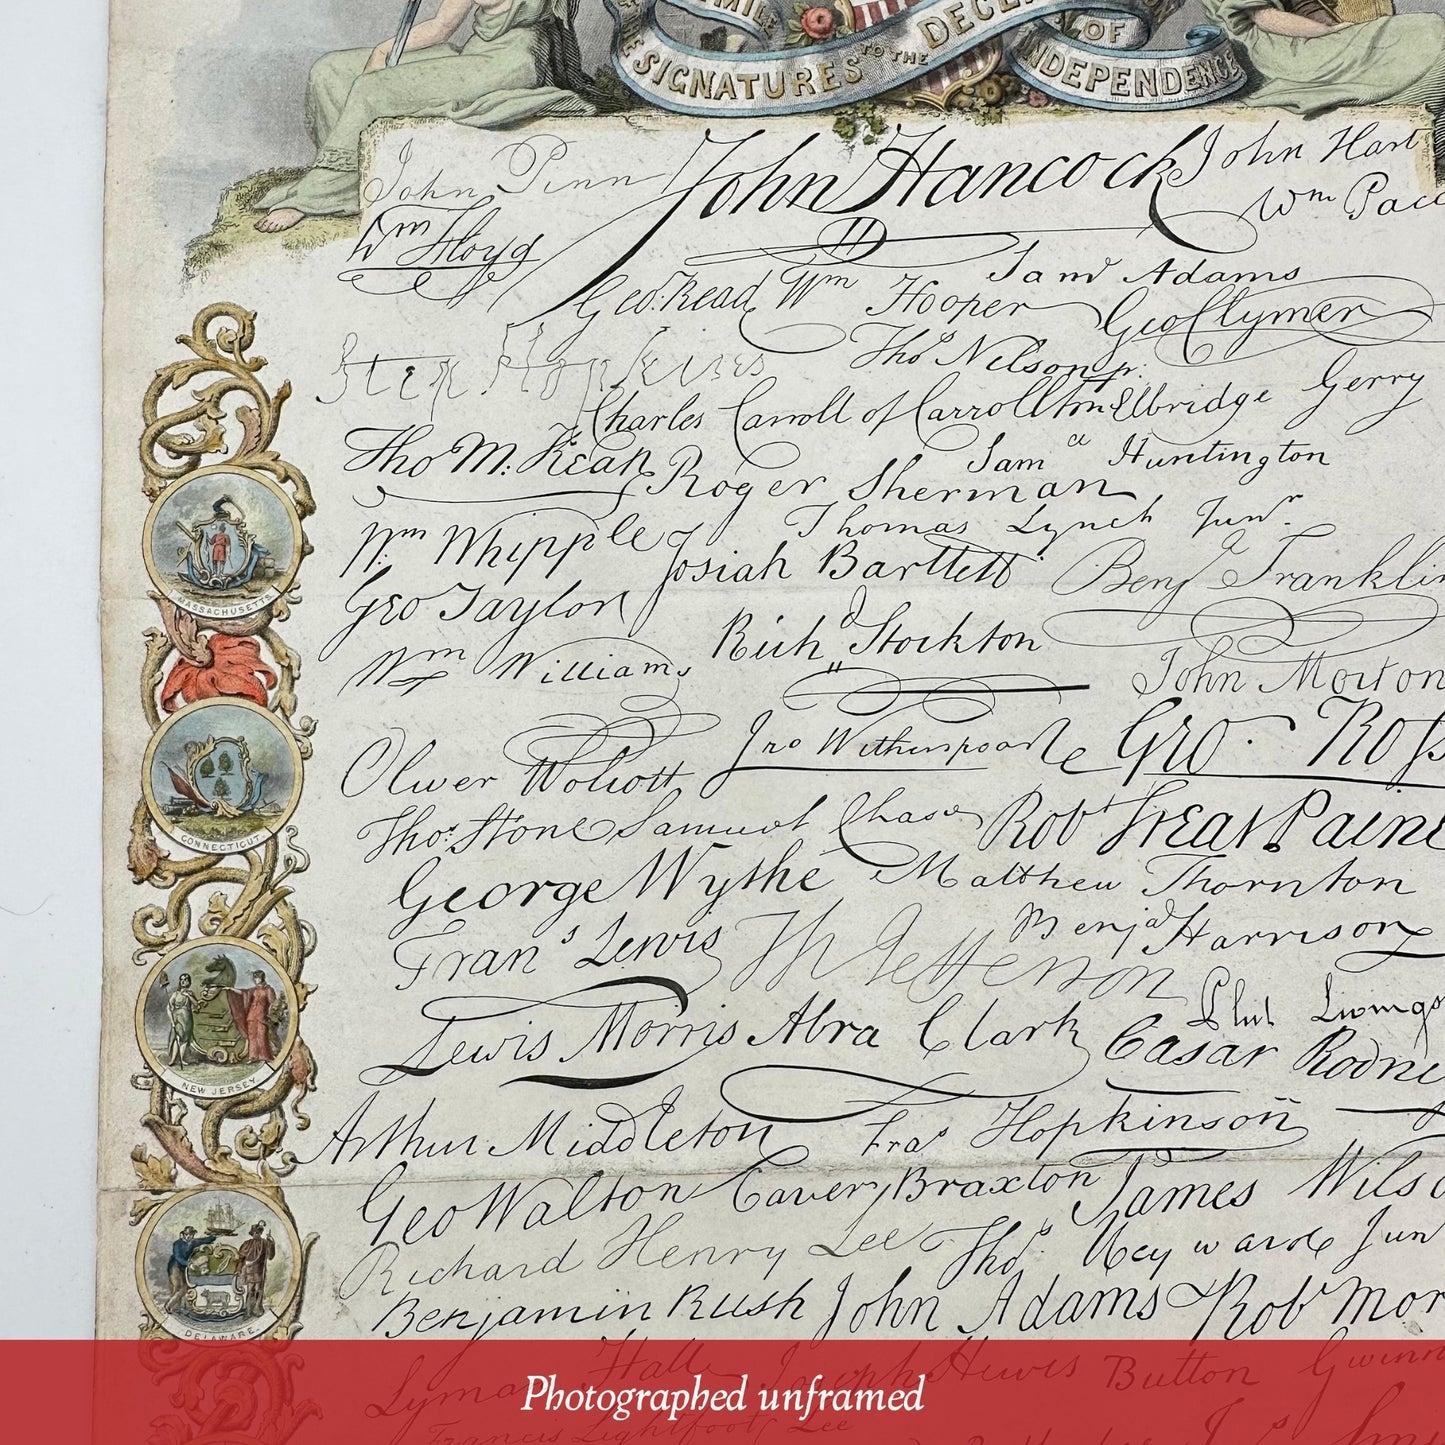 SIGNATURES TO THE DECL
OF
INDEPENDENCE
John Penn John Hancock John Hart
Wm Floyd Wm Pac
Saml Adams
Geo. Read Wm Hooper Geo Clymer
Step Hopkins Thos Nelson jr.
Charles Carroll of Carrollton Elbridge Gerry
Tho M: Kean Roger Sherman Saml Huntington
Thomas Lynch Junr.
Wm Whipple Josiah Bartlett Benj Franklin
Geo Taylor
Richd Stockton
Wm Williams John Morton
Oliver Wolcott Jno Witherspoon Geo. Ross
Thos. Stone Samuel Chase Robt Treat Paine
George Wythe Matthew Thornton
Frans Lewis Th Jefferson Benja Harrison
Lewis Morris Abra Clark Phil Livings
Cæsar Rodne
Arthur Middleton Fras Hopkinson
Geo Walton Carter Braxton James Wilso
Richard Henry Lee Thos. Heyward Jun
Benjamin Rush John Adams Robt Mor
Lyman Hall Joseph Hewes Button Gwinn
Francis Lightfoot Lee
MASSACHUSETTS
CONNECTICUT.
NEW JERSEY
DELAWARE.
Photographed unframed